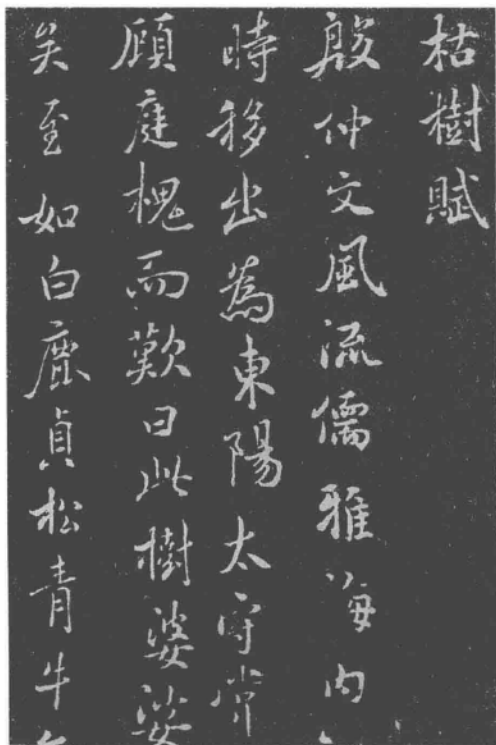 枯樹賦
殷仲文風流儒雅海内
時移出為東陽太守常
顧庭槐而歎曰此樹婆娑
矣至如白鹿貞松青牛